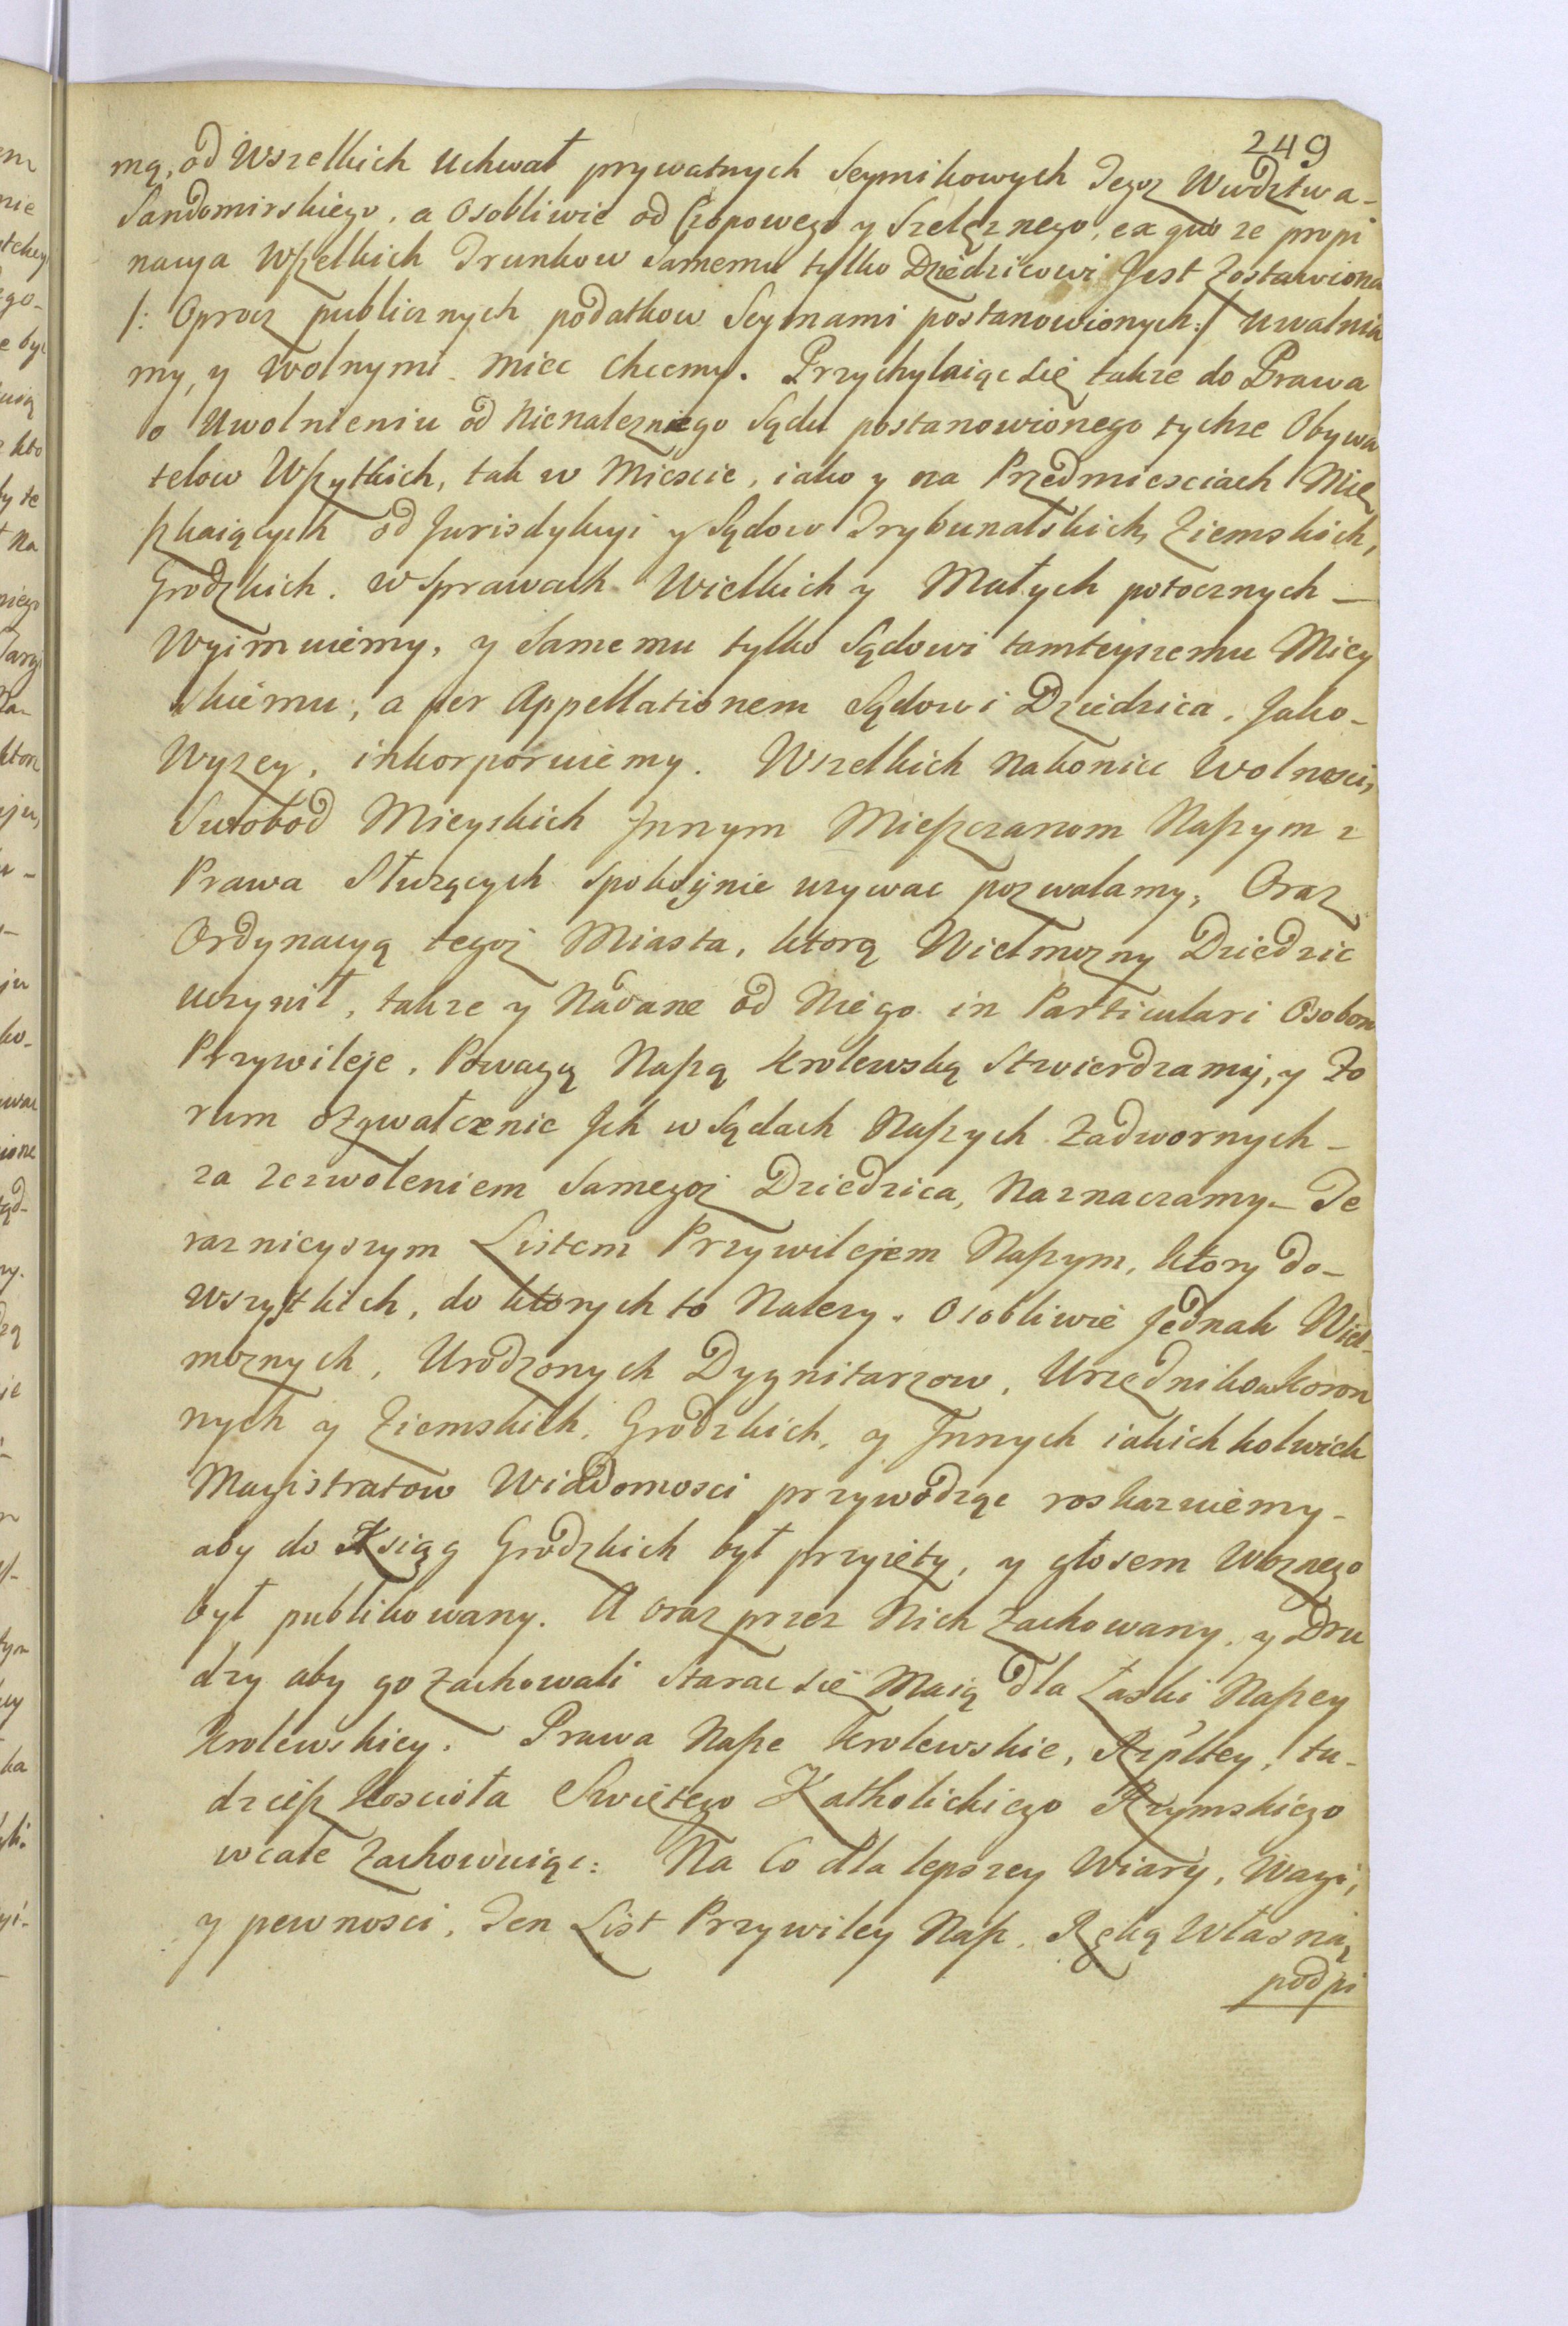 249
mą, od Wszelkich Uchwał prywatnych Seymikowych Tegoz Wwdztwa-
Sandomirskiego, a Osobliwie od Czopowego y Szelęznego, ex quo ze propi
nacya Wszelkich Trunkow Samemu tylko Dziedzicowi Jest Zostawiona
/: Oprocz publicznych podatkow Seymami postanowionych :/ Uwalnia
my, y Wolnymi miec chcemy. Przychylaiąc się takze do Prawa
o Uwolnieniu od Nienaleznego Sądu postanowionego tychze Obywa
telow Wszytkich, tak w Miescie, iako y na Przedmiesciach Mie
szkaiących od Jurisdykcyi y Sądow Trybunalskich, Ziemskich,
Grodzkich. w Sprawach Wielkich y Małych potocznych —
Wyimuiemy, y Samemu tylko Sądowi tamteyszemu Miey
skiemu, a per Appellationem Sądowi Dziedzica, Jako-
Wyzey, inkorporuiemy. Wszelkich nakoniec Wolnosci,
Swobod Mieyskich Jnnym Mieszczanom Naszym z
Prawa Służących Spokoynie uzywac pozwalamy, Oraz
Ordynacyą tegoz Miasta, ktorą Wielmozny Dziedzic
uczynił, takze y Nadane od Niego in Particulari Osobom
Przywileje, Powagą Naszą krolewską Stwierdzamy, y Fo
rum o zgwałcenie Jch w Sądach Naszych Zadwornych-
za zezwoleniem Samegoz Dziedzica, Naznaczamy- Te
raznieyszym Listem Przywilejem Naszym, ktory do-
wszystkich, do ktorych to Nalezy. Osobliwie Jednak Wiel-
moznych, Urodzonych Dygnitarzow, Urzędnikow koron
nych y Ziemskich, Grodzkich, y Jnnych iakichkolwiek
Magistratow Wiadomosci przywodząc roskazuiemy-
aby do Ksiąg Grodzkich był przyięty, y głosem Woznego
był publikowany. A oraz przez Nich Zachowany, y Dru
dzy aby go Zachowali Starac się Maią dla Łaski Naszey
krolewskiey. Prawa Nasze krolewskie, Rzpltey, tu-
dziesz kosciola Swiętego Katholickiego Rzymskiego
wcale Zachowuiąc: Na Co dla lepszey Wiary, Wagi,
y pewnosci, Ten List Przywiley Nasz, Ręką Własną
podpi